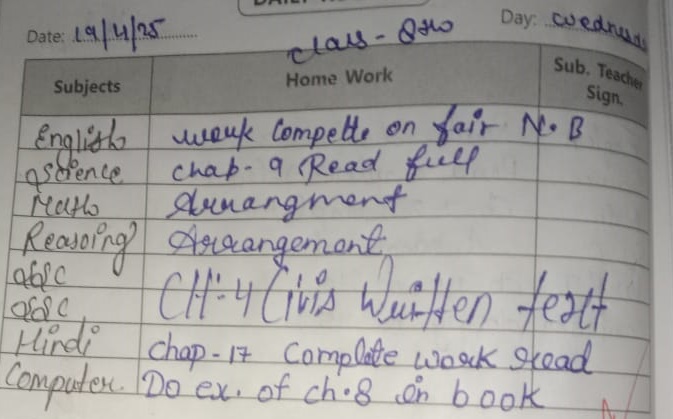 Date: 19/11/25 Day: Wednes
Class - 8th
Subjects Home Work Sub. Teacher Sign.
English work Compette on fair N.B
Science chap- 9 Read full
Maths Arrangment
Reasoing Arrangement
CH-4 Civis Written testt
Hindi Chap-17 Complete work read
Computer. Do ex. of ch.8 in book